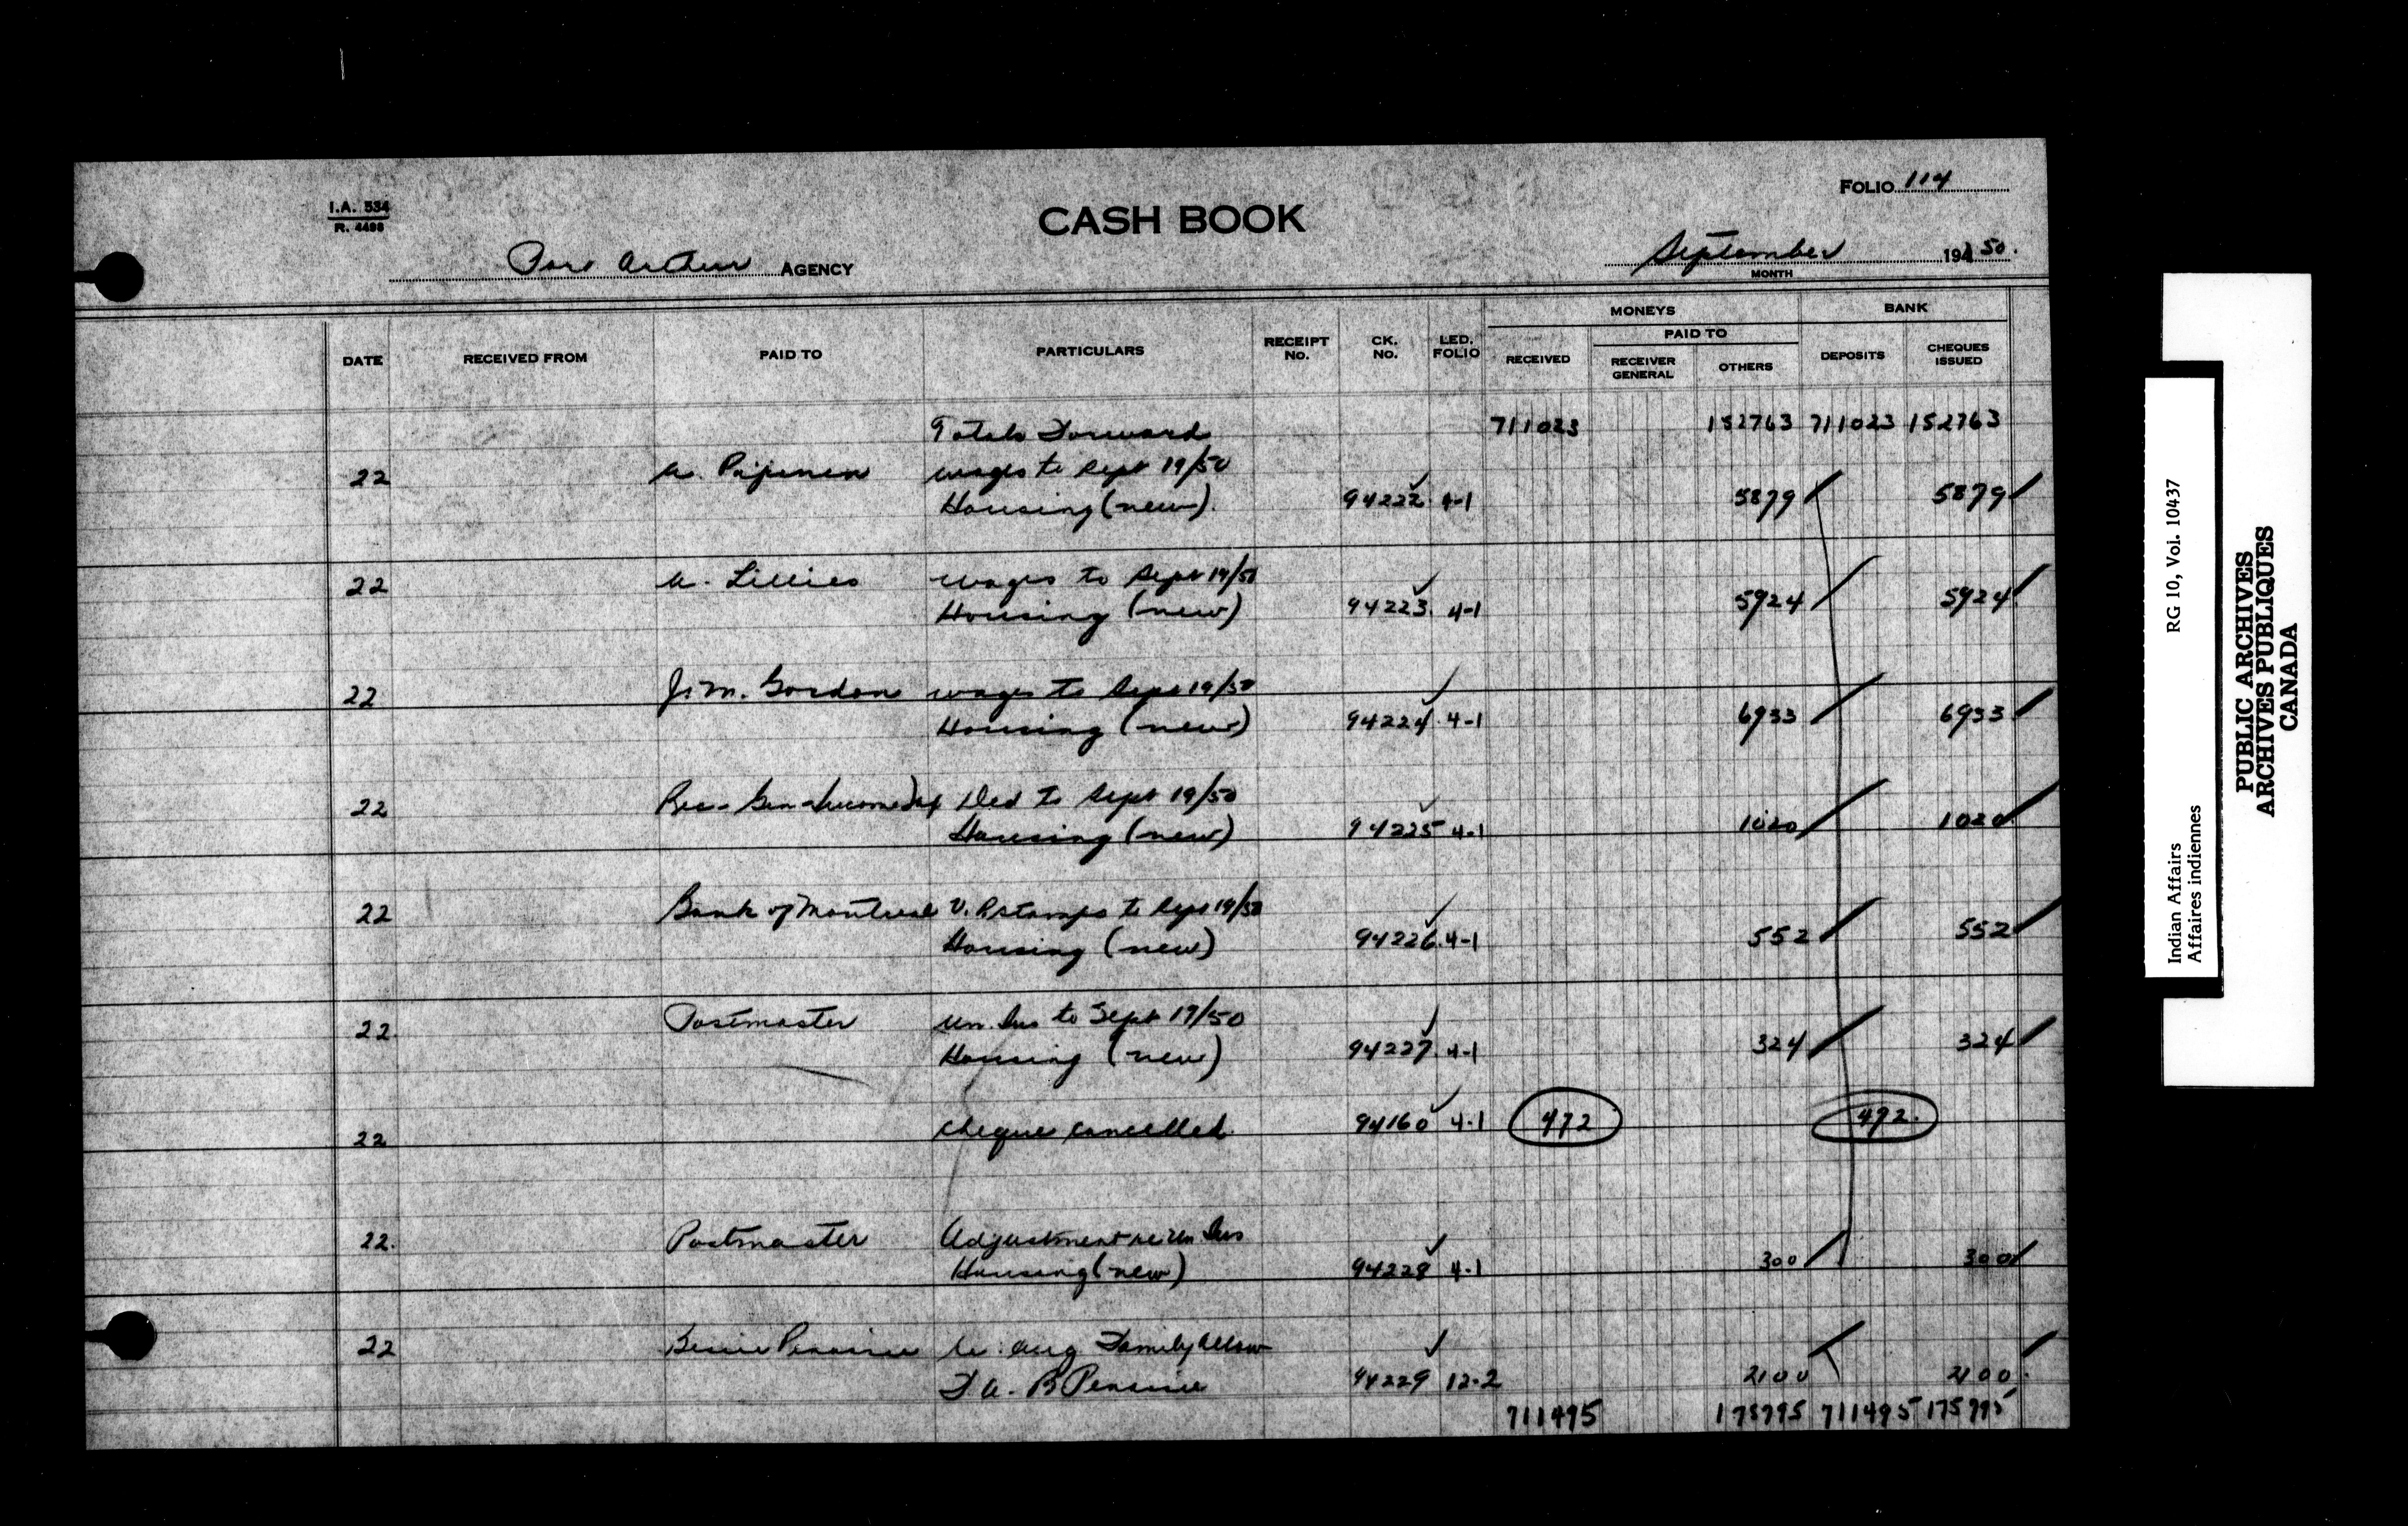 FOLIO 114
I.A. 534
R. 4498
CASH BOOK
Port Arthur AGENCY
September 19450.
MONTH
DATE RECEIVED FROM PAID TO PARTICULARS RECEIPT No. CK. No. LED. FOLIO MONEYS RECEIVED PAID TO RECEIVER GENERAL OTHERS BANK DEPOSITS CHEQUES ISSUED
Totals Forward 711023 152763 711023 152763
22 A. Pajunen wages to Sept 19/50
Housing (new). 94222 4-1 5879 5879
22 A. Lillies wages to Sept 19/50
Housing (new) 94223. 4-1 5924 5924
22 J.M. Gordon wages to Sept 19/50
Housing (new) 94224. 4-1 6933 6933
22 Rec. Gen Income Tax Ded to Sept 19/50
Housing (new) 94225 4-1 1020 1020
22 Bank of Montreal V. P. Stamps to Sept 19/50
Housing (new) 94226. 4-1 552 552
22. Postmaster Un. Ins to Sept 19/50
Housing (new) 94227. 4-1 324 324
22 cheque cancelled. 94160 4-1 472 472.
22. Postmaster Adjustment re Un Ins
Housing (new) 94228 4-1 300 300
22 Aug Family Allow
94229 12-2 2100 2100.
711495 175795 711495 175795
RG 10, Vol. 10437
Indian Affairs
Affaires indiennes
PUBLIC ARCHIVES
ARCHIVES PUBLIQUES
CANADA